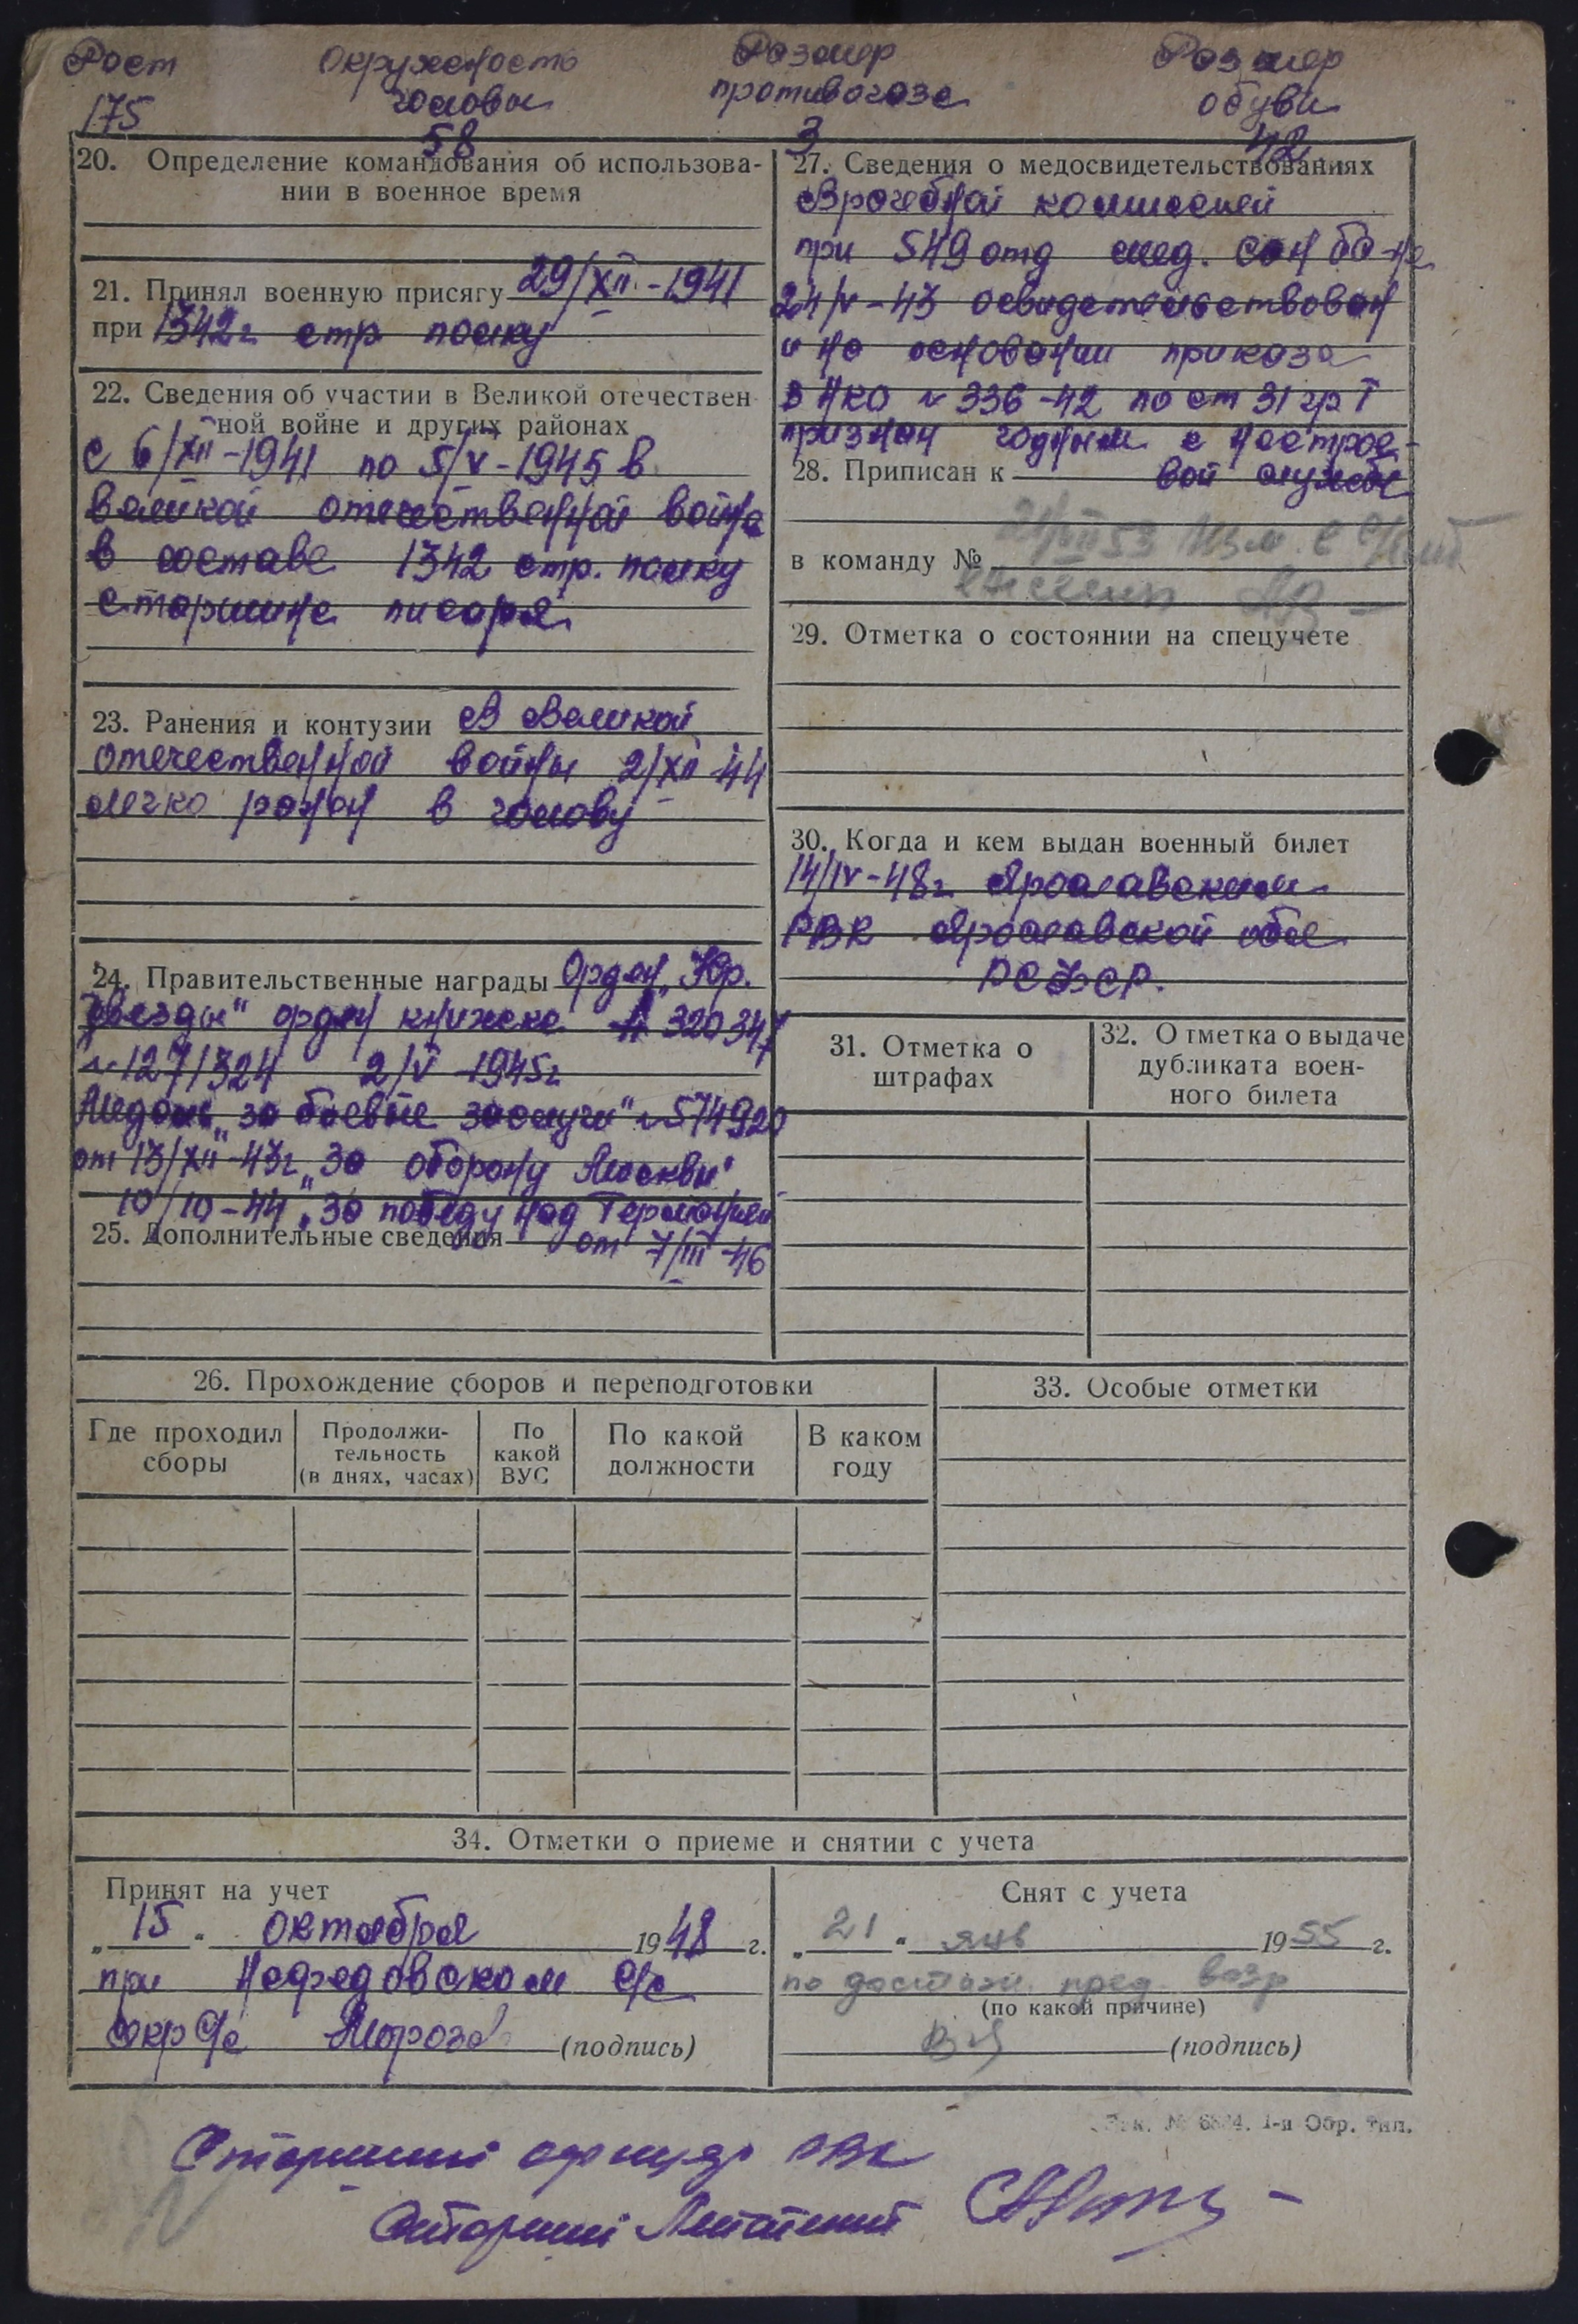 Рост Окружность Размер Размер
головы противогаза обуви
175 58 3 42
20. Определение командования об использова-
нии в военное время
21. Принял военную присягу 29/XII-1941
при 1342г стр полку
22. Сведения об участии в Великой отечествен
ной войне и других районах
с 6/XII-1941 по 5/V-1945 в
великой отечественной война
в составе 1342 стр. полку
старшина писаря
23. Ранения и контузии В Великой
отечественной войны 2/XII-44
легко ранен в голову
24. Правительственные награды Орден „Кр.
звезды" орден книжка А 320347
№ 1271324 2/V-1945г
Медаль „за боевые заслуги" № 574920
от 13/XII-43г „За оборону Москвы"
10/10-44 „За победу над Германией
25. Дополнительные сведения от 7/III-46
27. Сведения о медосвидетельствованиях
Врачебной комиссией
при 549 отд мед. сан ба-не
24/V-43 освидетельствован
и на основании приказа
НКО № 336-42 по ст 31 гр I
признан годным к нестрое-
28. Приписан к вой службе
в команду №
29. Отметка о состоянии на спецучете
30. Когда и кем выдан военный билет
14/IV-48г Ярославским
РВК Ярославской обл
РСФСР.
31. Отметка о
штрафах
32. Отметка о выдаче
дубликата воен-
ного билета
26. Прохождение сборов и переподготовки
Где проходил
сборы
Продолжи-
тельность
(в днях, часах)
По
какой
ВУС
По какой
должности
В каком
году
33. Особые отметки
34. Отметки о приеме и снятии с учета
Принят на учет
„15" октября 1948 г.
при Нефедовском с/с
секр с/с Мороза (подпись)
Снят с учета
„21" янв 1955 г.
по достиж. пред. возр
(по какой причине)
(подпись)
1-я Обр. тип.
Старший офицер РВК
Старший Лейтенант